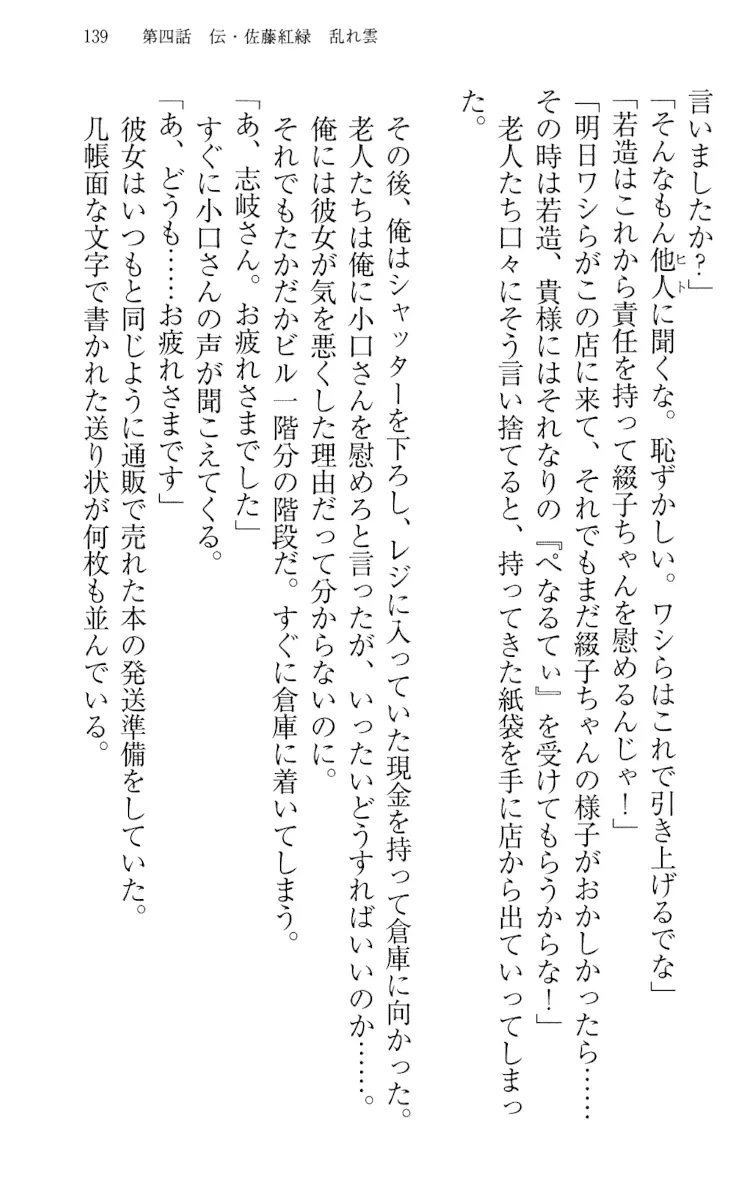 139　第四話　伝・佐藤紅緑　乱れ雲
言いましたか？」
「そんなもん他人に聞くな。恥ずかしい。ワシらはこれで引き上げるでな」
ヒト
「若造はこれから責任を持って綴子ちゃんを慰めるんじゃ！」
「明日ワシらがこの店に来て、それでもまだ綴子ちゃんの様子がおかしかったら……
その時は若造、貴様にはそれなりの『ぺなるてぃ』を受けてもらうからな！」
　老人たち口々にそう言い捨てると、持ってきた紙袋を手に店から出ていってしまっ
た。
　その後、俺はシャッターを下ろし、レジに入っていた現金を持って倉庫に向かった。
　老人たちは俺に小口さんを慰めろと言ったが、いったいどうすればいいのか……。
　俺には彼女が気を悪くした理由だって分からないのに。
　それでもたかだかビル一階分の階段だ。すぐに倉庫に着いてしまう。
「あ、志岐さん。お疲れさまでした」
　すぐに小口さんの声が聞こえてくる。
「あ、どうも……お疲れさまです」
　彼女はいつもと同じように通販で売れた本の発送準備をしていた。
　几帳面な文字で書かれた送り状が何枚も並んでいる。